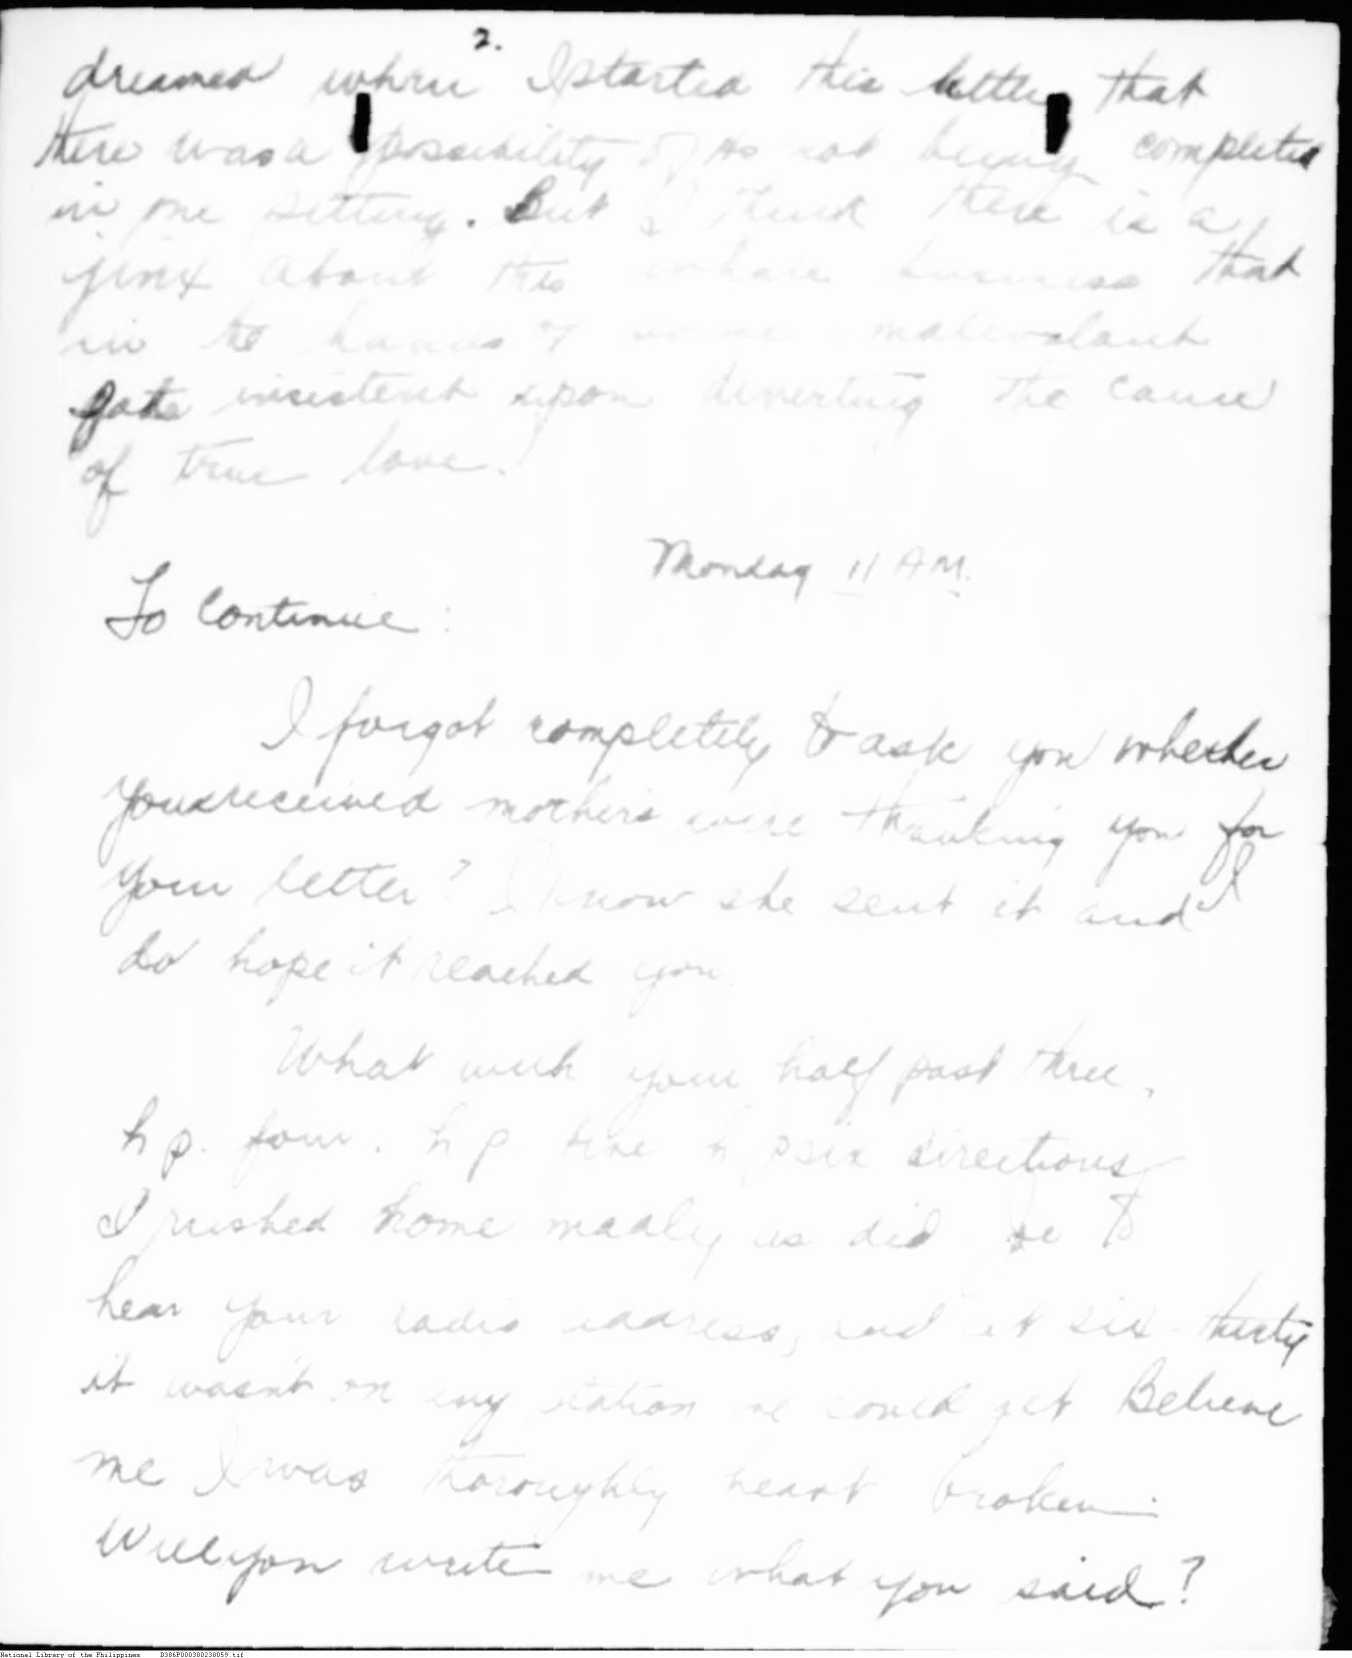 2.
dreamed when I started this letter that
there was a possibility of its not being completed
in one sitting. But I think there is a
jinx about this whole business that
in the hands of some malevolant
fate insistent upon diverting the cause
of true love.
Monday 11 AM.
To continue:
I forgot completely to ask you whether
you received mother's wire thanking you for
your letter? I know she sent it and I
do hope it reached you
What with your half past three,
h p. four. h p five h p six directions
I rushed home madly as did to
hear your radio address, and at six thirty
it wasn't on any station we could get Believe
me I was thoroughly heart broken.
Will you write me what you said?
National Library of the Philippines D386P000300230059.tif